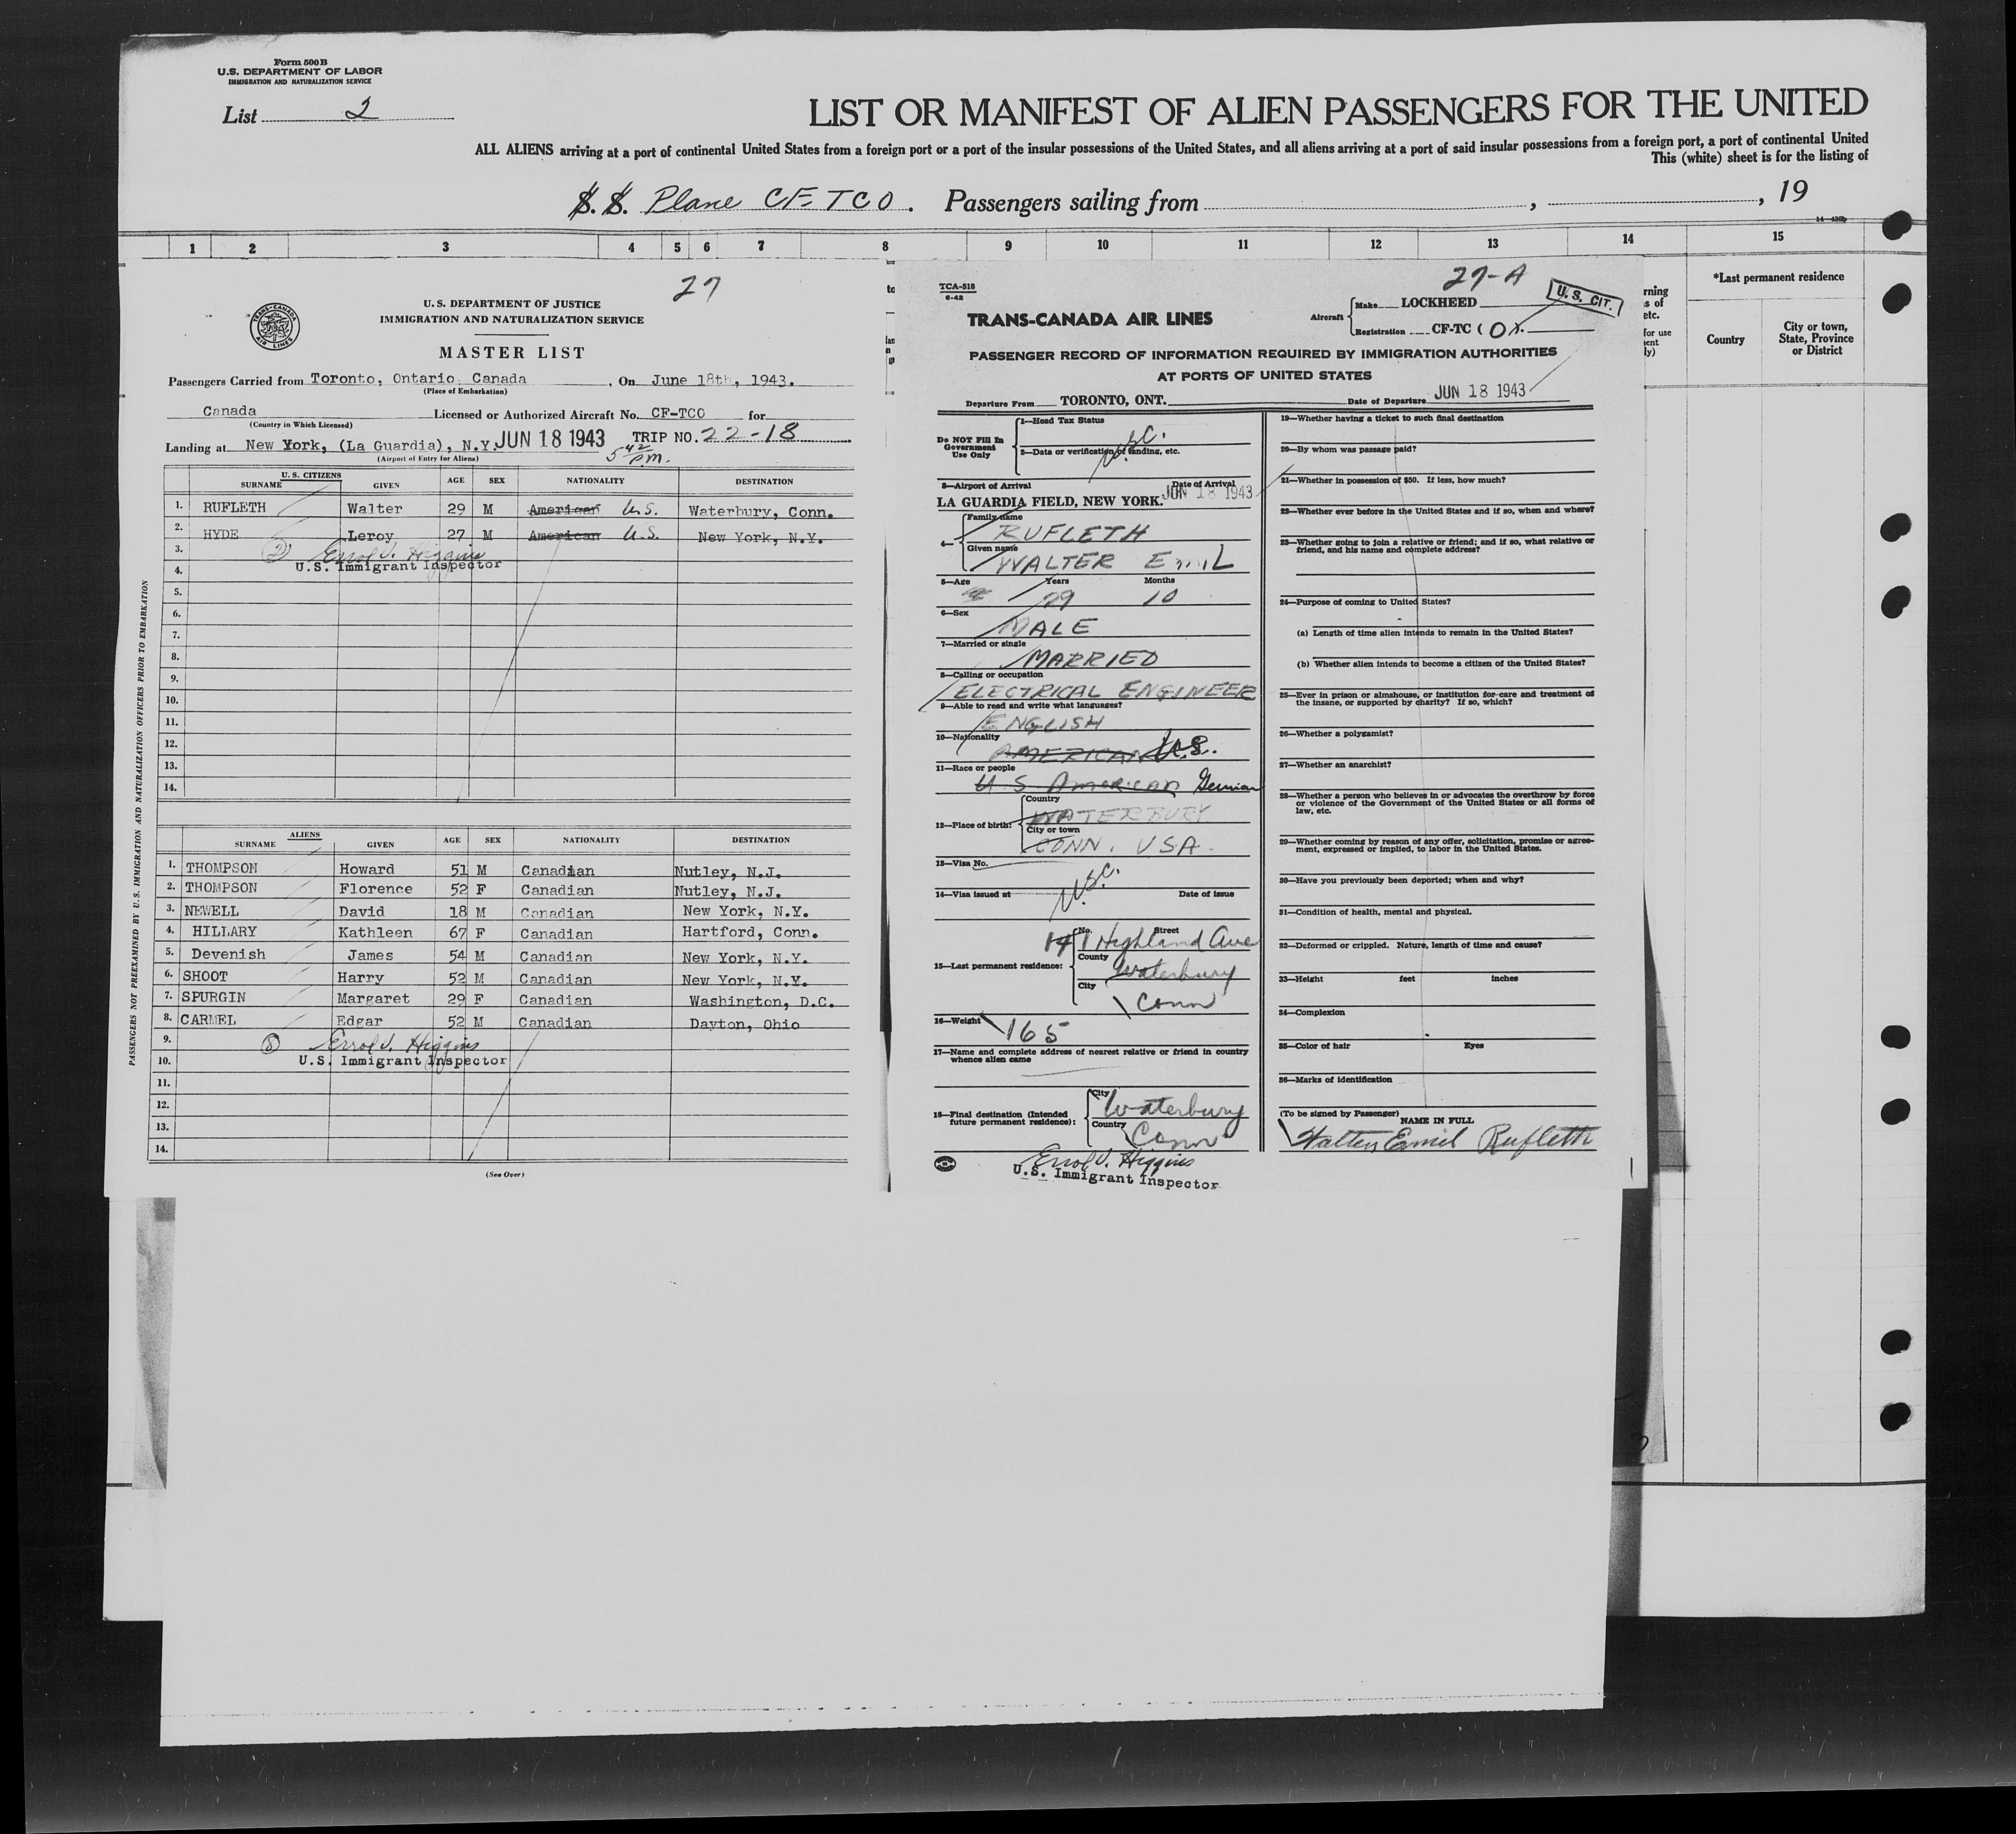 Form 500 B
U.S. DEPARTMENT OF LABOR
IMMIGRATION AND NATURALIZATION SERVICE
List 2
LIST OR MANIFEST OF ALIEN PASSENGERS FOR THE UNITED
ALL ALIENS arriving at a port of continental United States from a foreign port or a port of the insular possessions of the United States, and all aliens arriving at a port of said insular possessions from a foreign port, a port of continental United
This (white) sheet is for the listing of
S. S. Plane CF-TCO. Passengers sailing from , , 19
1 2 3 4 5 6 7 8 9 10 11 12 13 14 15
*Last permanent residence
Country City or town, State, Province or District
27
TRANS-CANADA AIR LINES
U. S. DEPARTMENT OF JUSTICE
IMMIGRATION AND NATURALIZATION SERVICE
MASTER LIST
Passengers Carried from Toronto, Ontario Canada , On June 18th, 1943.
(Place of Embarkation)
Canada Licensed or Authorized Aircraft No. CF-TCO for
(Country in Which Licensed)
Landing at New York, (La Guardia), N.Y. JUN 18 1943 TRIP NO. 22-18
(Airport of Entry for Aliens) 5 42 P.M.
U.S. CITIZENS
SURNAME GIVEN AGE SEX NATIONALITY DESTINATION
1. RUFLETH Walter 29 M American U.S. Waterbury, Conn.
2. HYDE Leroy 27 M American U.S. New York, N.Y.
3. (2) Errol V. Higgins
4. U.S. Immigrant Inspector
5.
6.
7.
8.
9.
10.
11.
12.
13.
14.
ALIENS
SURNAME GIVEN AGE SEX NATIONALITY DESTINATION
1. THOMPSON Howard 51 M Canadian Nutley, N.J.
2. THOMPSON Florence 52 F Canadian Nutley, N.J.
3. NEWELL David 18 M Canadian New York, N.Y.
4. HILLARY Kathleen 67 F Canadian Hartford, Conn.
5. Devenish James 54 M Canadian New York, N.Y.
6. SHOOT Harry 52 M Canadian New York, N.Y.
7. SPURGIN Margaret 29 F Canadian Washington, D.C.
8. CARMEL Edgar 52 M Canadian Dayton, Ohio
9. (8) Errol V. Higgins
10. U.S. Immigrant Inspector
11.
12.
13.
14.
(See Over)
PASSENGERS NOT PREEXAMINED BY U. S. IMMIGRATION AND NATURALIZATION OFFICERS PRIOR TO EMBARKATION
TCA-518
6-42
27-A
U. S. CIT.
TRANS-CANADA AIR LINES
Aircraft Make LOCKHEED
Registration CF-TC (O).
PASSENGER RECORD OF INFORMATION REQUIRED BY IMMIGRATION AUTHORITIES
AT PORTS OF UNITED STATES
Departure From TORONTO, ONT. Date of Departure JUN 18 1943
Do NOT Fill In Government Use Only
1—Head Tax Status
U.S.C.
2—Data or verification of landing, etc.
3—Airport of Arrival Date of Arrival
LA GUARDIA FIELD, NEW YORK. JUN 18 1943
4— Family name
RUFLETH
Given name
WALTER EmiL
5—Age Years Months
29 10
6—Sex
MALE
7—Married or single
MARRIED
8—Calling or occupation
ELECTRICAL ENGINEER
9—Able to read and write what languages?
ENGLISH
10—Nationality
AMERICAN U.S.
11—Race or people
U S American German
12—Place of birth: Country
WATERBURY
City or town
CONN. USA.
13—Visa No.
U.S.C.
14—Visa issued at Date of issue
15—Last permanent residence: No. Street
141 Highland Ave
County
Waterbury
City
Conn
16—Weight 165
17—Name and complete address of nearest relative or friend in country whence alien came
18—Final destination (Intended future permanent residence): City
Waterbury
Country
Conn
Errol V. Higgins
U.S. Immigrant Inspector
19—Whether having a ticket to such final destination
20—By whom was passage paid?
21—Whether in possession of $50. If less, how much?
22—Whether ever before in the United States and if so, when and where?
23—Whether going to join a relative or friend; and if so, what relative or friend, and his name and complete address?
24—Purpose of coming to United States?
(a) Length of time alien intends to remain in the United States?
(b) Whether alien intends to become a citizen of the United States?
25—Ever in prison or almshouse, or institution for care and treatment of the insane, or supported by charity? If so, which?
26—Whether a polygamist?
27—Whether an anarchist?
28—Whether a person who believes in or advocates the overthrow by force or violence of the Government of the United States or all forms of law, etc.
29—Whether coming by reason of any offer, solicitation, promise or agreement, expressed or implied, to labor in the United States.
30—Have you previously been deported; when and why?
31—Condition of health, mental and physical.
32—Deformed or crippled. Nature, length of time and cause?
33—Height feet inches
34—Complexion
35—Color of hair Eyes
36—Marks of identification
(To be signed by Passenger)
NAME IN FULL
Walter Emil Rufleth